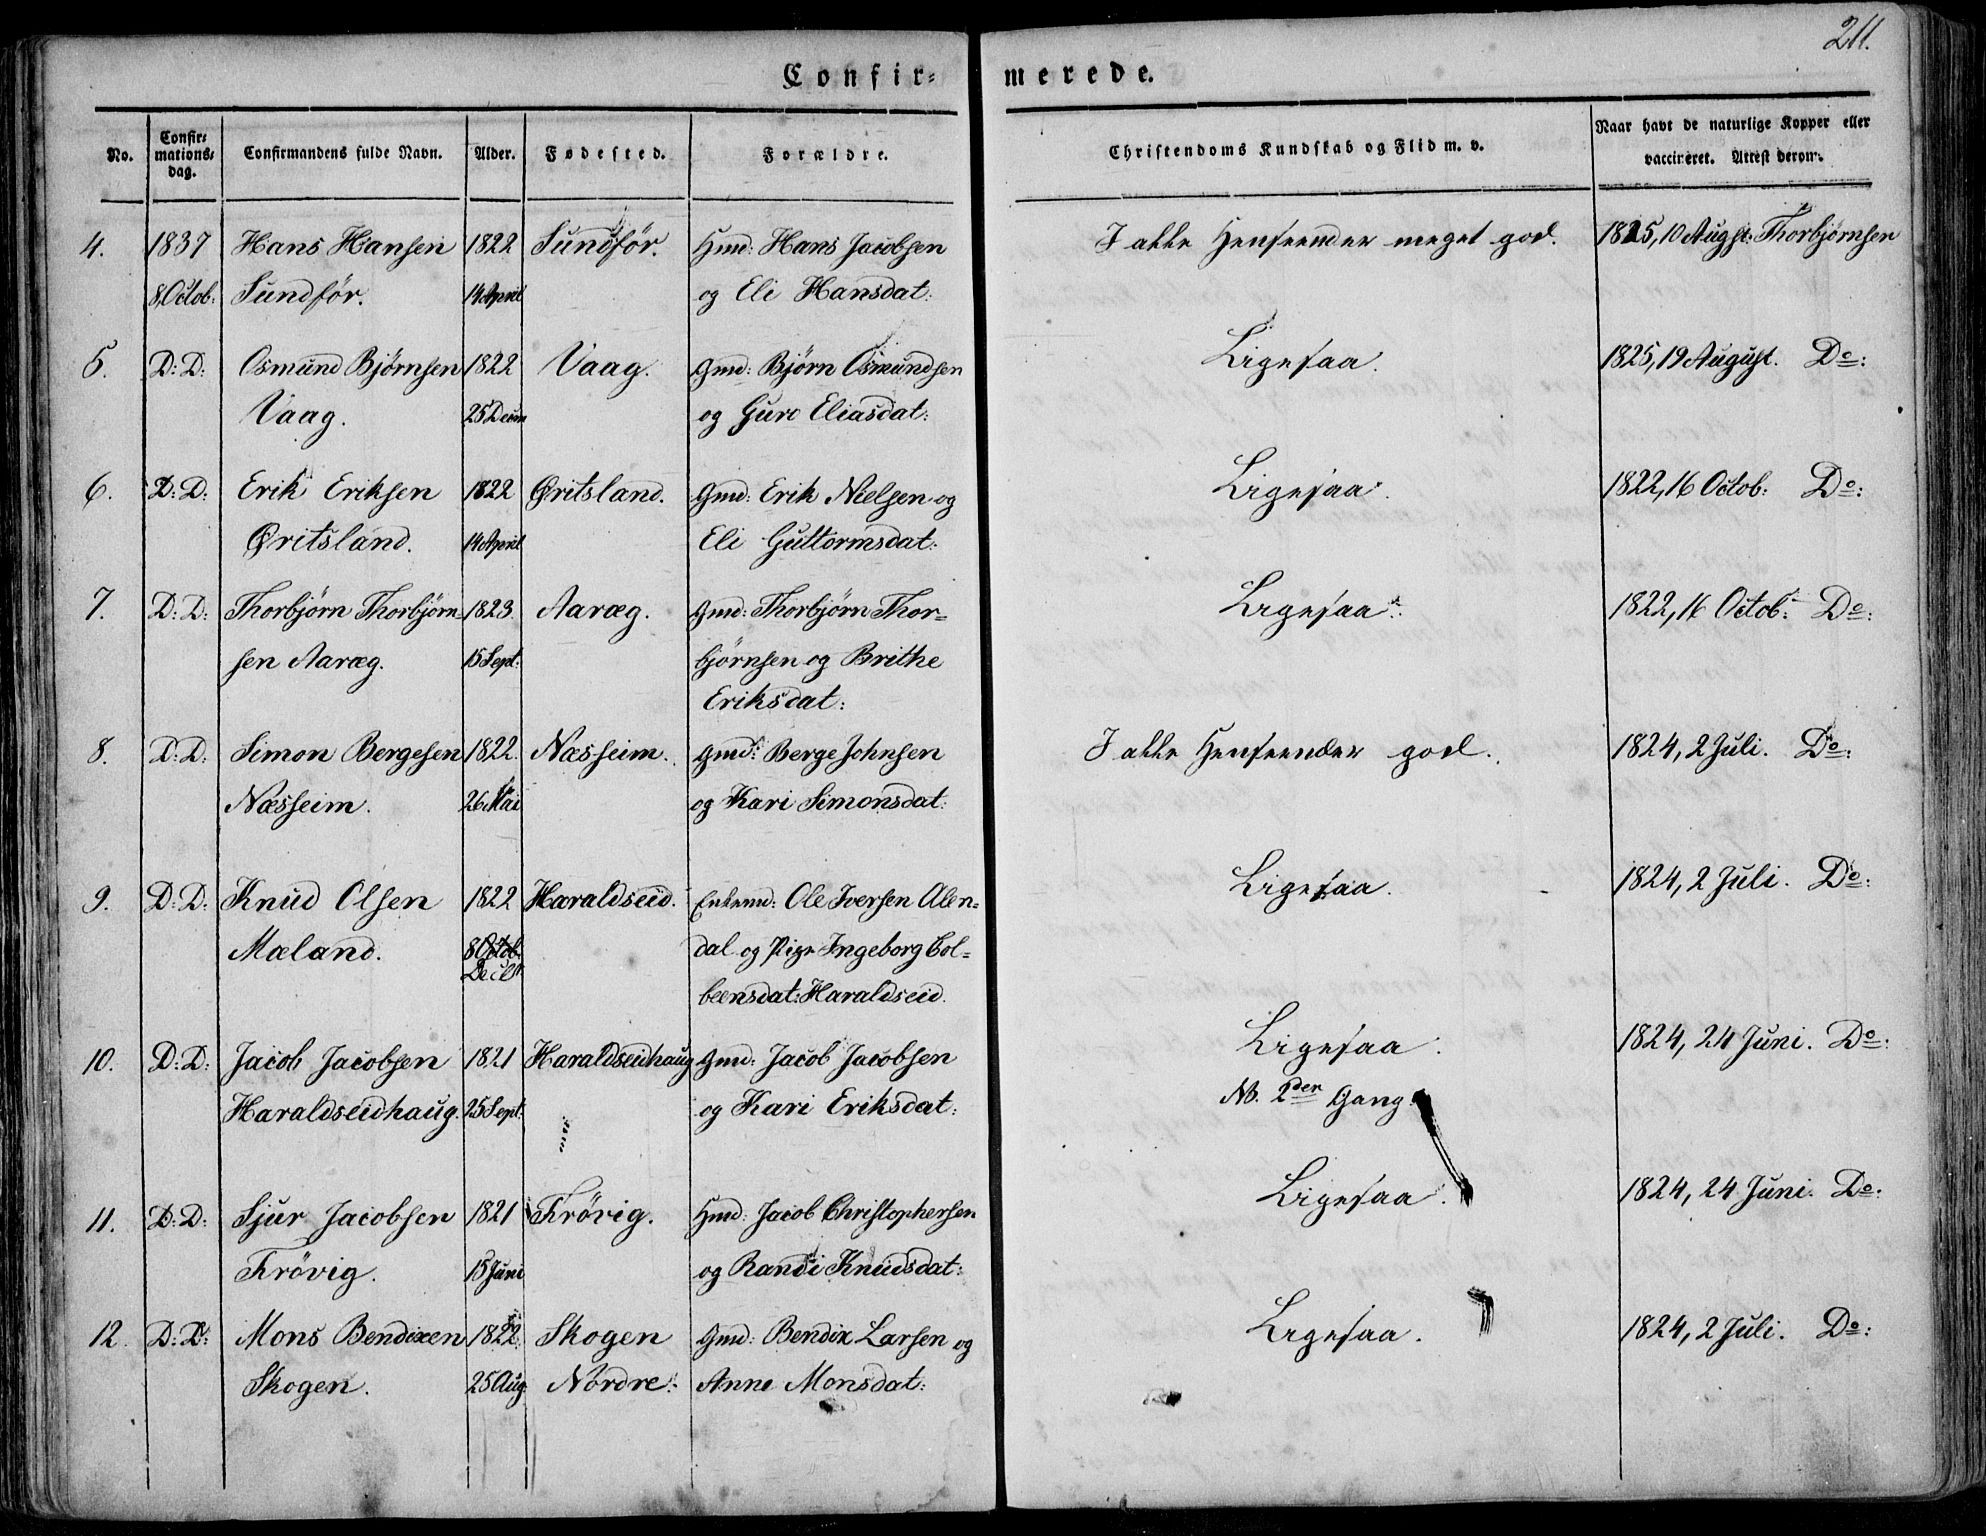 211.
Confir= merede.
No. Confir= mations= dag. Confirmandens fulde Navn. Alder. Fødested. Forældre. Christendoms Kundskab og Flid m. v. Naar havt de naturlige Kopper eller vaccineret. Attest derom.
4. 1837 Hans Hansen 1822 Sundför. Hmd: Hans Jacobsen I alle Henseender meget god. 1825, 10 Augst. Thorbjørnsen
8 Octob: Sundför. 14 April og Eli Hansdat:
5. D: D: Osmund Bjørnsen 1822 Vaag. Gmd: Bjørn Osmundsen Ligesaa. 1825, 19 August. Do:
Vaag. 25 Decem og Guro Eliasdat:
6. D: D: Erik Eriksen 1822 Øritsland. Gmd: Erik Nielsen og Ligesaa. 1822, 16 Octob: Do:
Øritsland. 14 April Eli Guttormsdat:
7. D: D: Thorbjörn Thorbjörn= 1823. Aaræg. Gmd: Thorbjörn Thor= Ligesaa. 1822, 16 Octob: Do:
sen Aaræg. 15 Sept: bjørnsen og Brithe
Eriksdat:
8. D: D: Simon Bergesen 1822. Næsseim. Gmd: Berge Johnsen I alle Henseender god. 1824, 2 Juli. Do:
Næsseim. 26 Mai og Kari Simonsdat:
9. D: D: Knud Olsen 1822 Haraldseid. Enkemd: Ole Iversen Alen= Ligesaa. 1824, 2 Juli. Do:
Mæland. 8 Octob. dal og Pige Ingeborg Col=
beensdat: Haraldseid.
10. D: D: Jacob Jacobsen 1821 Haraldseidhaug Gmd: Jacob Jacobsen Ligesaa. 1824, 24 Juni. Do:
Haraldseidhaug. 25 Sept: og Kari Eriksdat: NB. 2den Gang.
11. D: D: Sjur Jacobsen 1821 Frövig. Hmd: Jacob Christophersen Ligesaa. 1824, 24 Juni. Do:
Frövig. 15 Juni og Randi Knudsdat:
12. D: D: Mons Bendixen 1822. Skogen Gmd: Bendix Larsen og Ligesaa. 1824, 2 Juli. Do:
Skogen. 25 Aug. Nordre. Anne Monsdat: